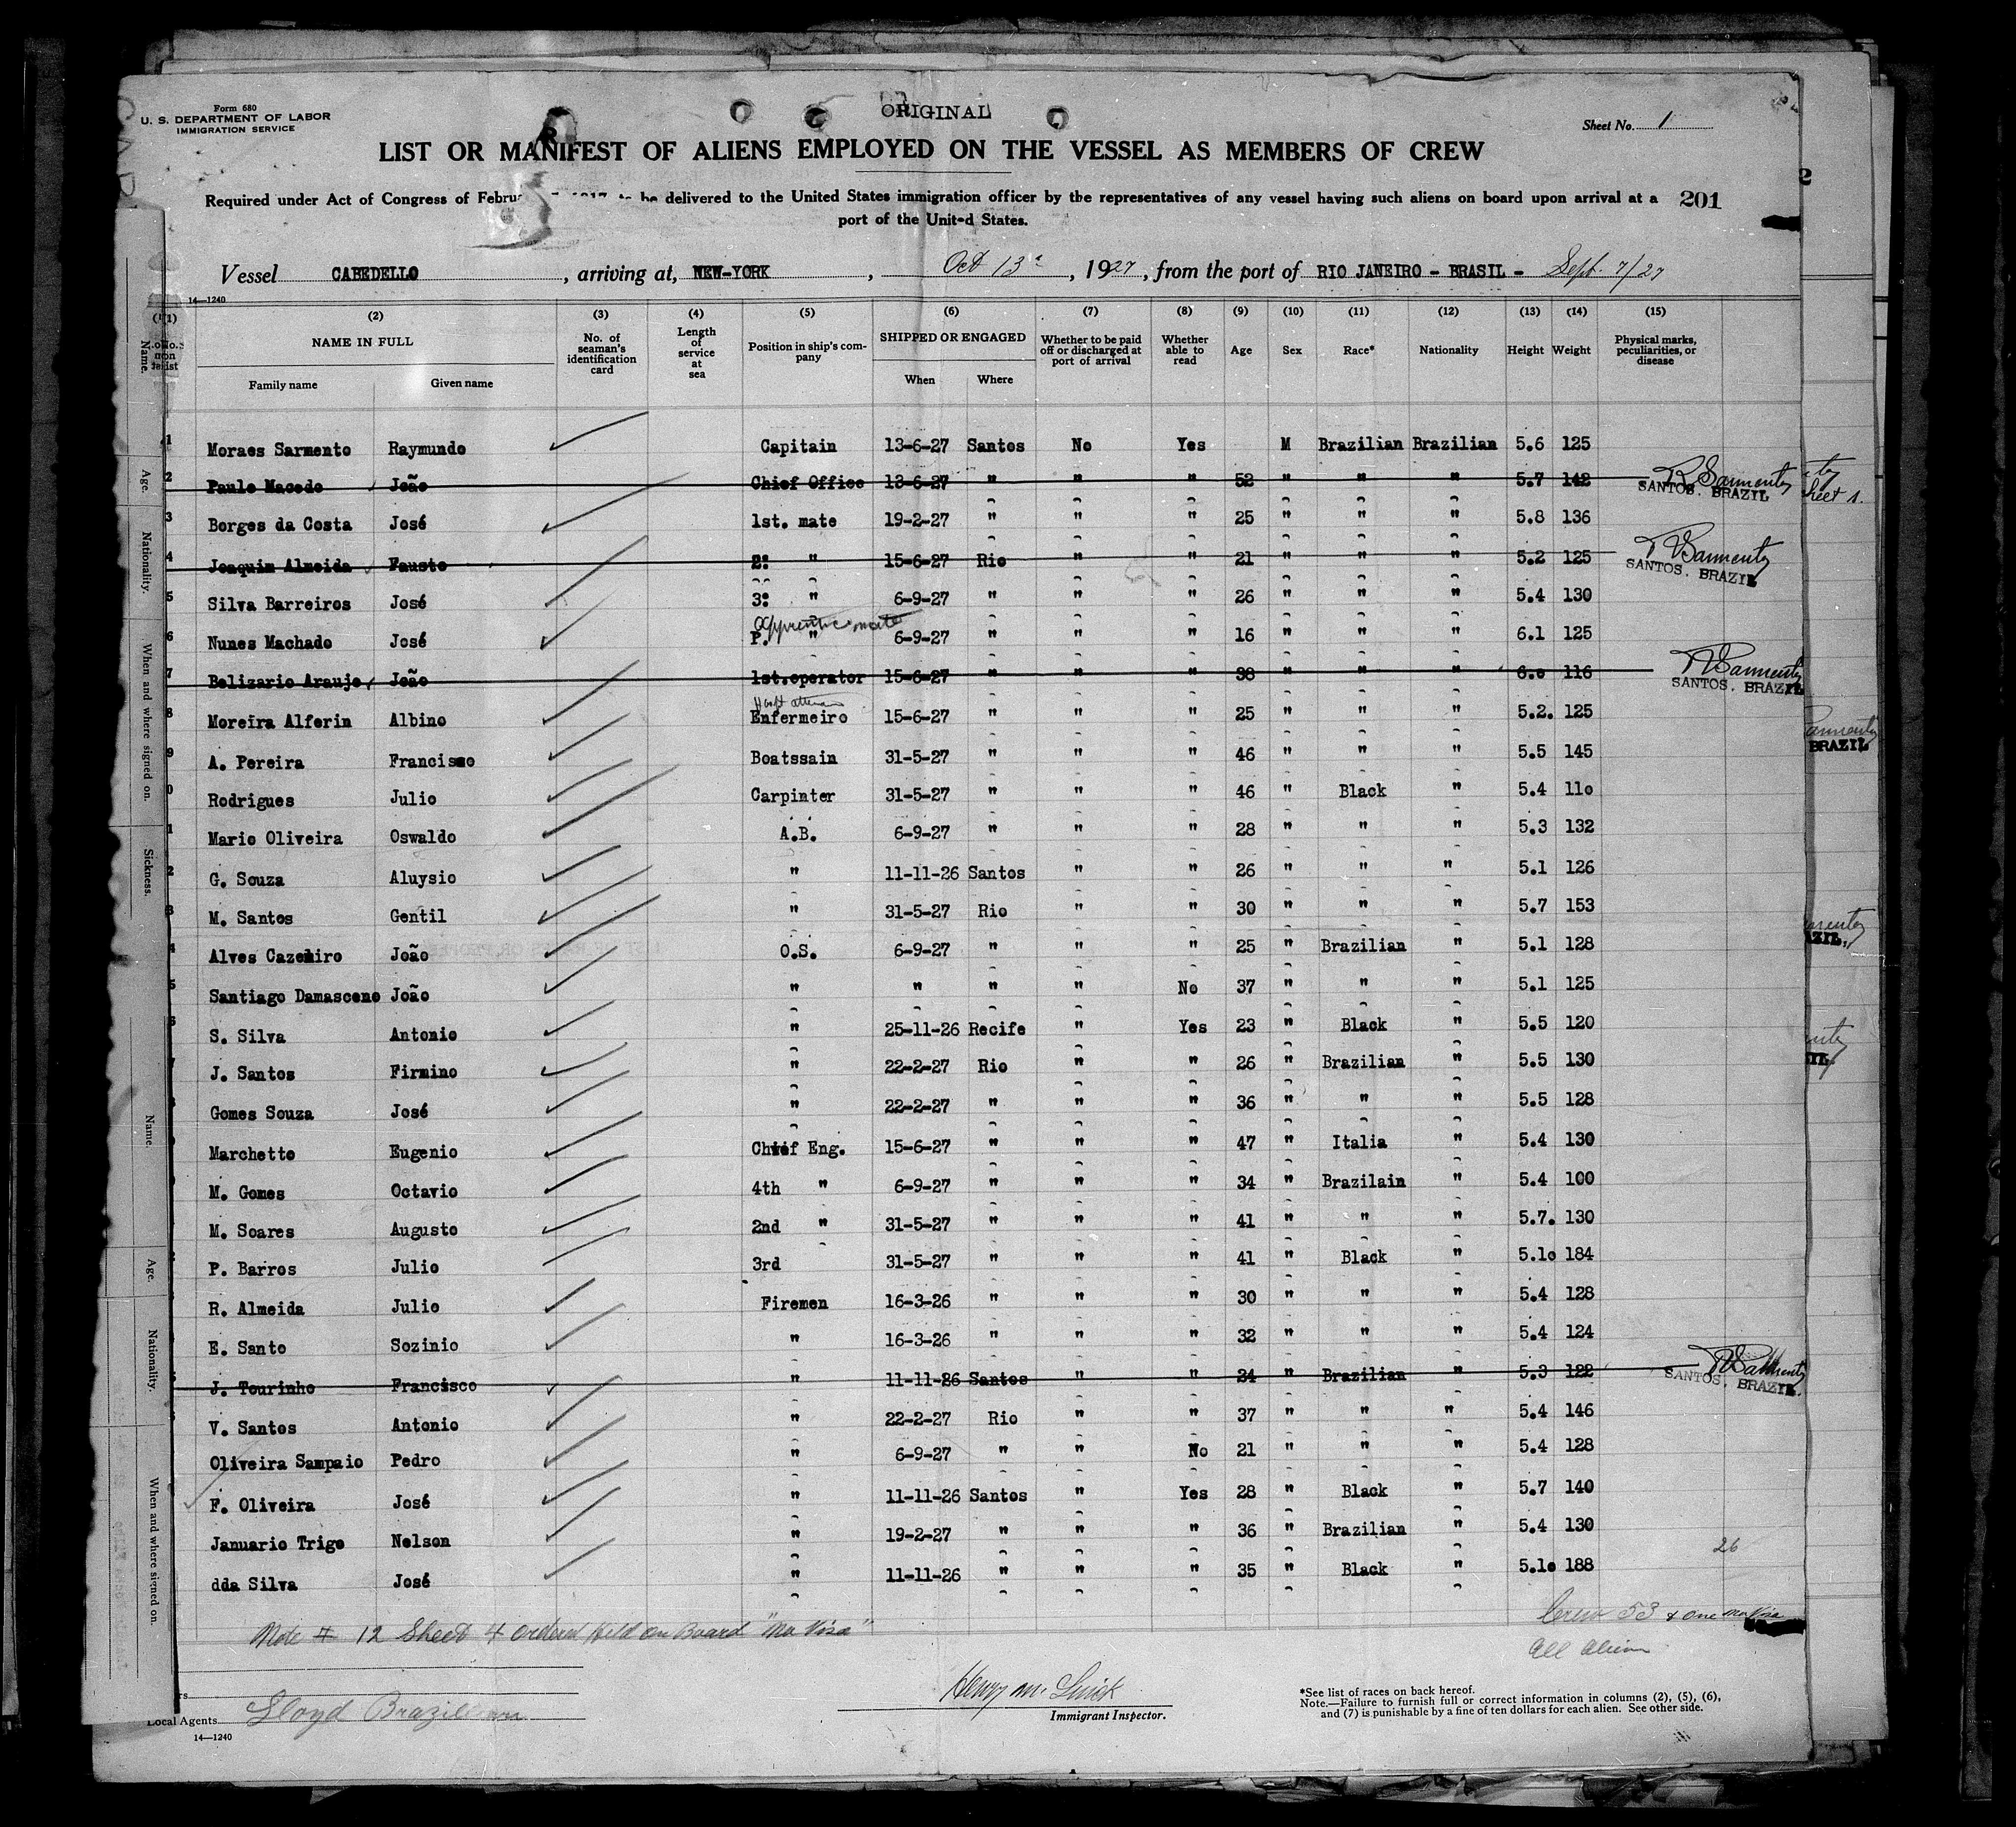 Form 680
U. S. DEPARTMENT OF LABOR
IMMIGRATION SERVICE
ORIGINAL
Sheet No. 1
LIST OR MANIFEST OF ALIENS EMPLOYED ON THE VESSEL AS MEMBERS OF CREW
Required under Act of Congress of Februa 1917, to be delivered to the United States immigration officer by the representatives of any vessel having such aliens on board upon arrival at a
port of the United States.
201
Vessel CABEDELLO, arriving at, NEW-YORK, Oct 13, 1927, from the port of RIO JANEIRO - BRASIL - Sept. 7/27
14—1240
(1) (2) (3) (4) (5) (6) (7) (8) (9) (10) (11) (12) (13) (14) (15)
NAME IN FULL
Family name Given name
No. of seaman's identification card
Length of service at sea
Position in ship's company
SHIPPED OR ENGAGED
When Where
Whether to be paid off or discharged at port of arrival
Whether able to read
Age Sex Race* Nationality Height Weight
Physical marks, peculiarities, or disease
1 Moraes Sarmento Raymundo Capitain 13-6-27 Santos No Yes M Brazilian Brazilian 5.6 125
2 Paulo Macedo João Chief Office 13-6-27 " " " 52 " " " 5.7 142 R Sarmento SANTOS, BRAZIL
3 Borges da Costa José 1st. mate 19-2-27 " " " 25 " " " 5.8 136
4 Joaquim Almeida Fausto 2: " 15-6-27 Rio " " 21 " " " 5.2 125 Sarmento SANTOS, BRAZIL
5 Silva Barreiros José 3: " 6-9-27 " " " 26 " " " 5.4 130
apprentice mate
6 Nunes Machado José P. " 6-9-27 " " " 16 " " " 6.1 125
7 Belizario Araujo João 1st.operator 15-6-27 " " " 38 " " " 6.o 116 Sarmento SANTOS, BRAZIL
8 Moreira Alferin Albino Enfermeiro 15-6-27 " " " 25 " " " 5.2. 125
9 A. Pereira Francisco Boatssain 31-5-27 " " " 46 " " " 5.5 145
0 Rodrigues Julio Carpinter 31-5-27 " " " 46 " Black " 5.4 11o
1 Mario Oliveira Oswaldo A.B. 6-9-27 " " " 28 " " " 5.3 132
2 G. Souza Aluysio " 11-11-26 Santos " " 26 " " " 5.1 126
3 M. Santos Gentil " 31-5-27 Rio " " 30 " " " 5.7 153
4 Alves Cazemiro João O.S. 6-9-27 " " " 25 " Brazilian " 5.1 128
5 Santiago Damasceno João " " " " No 37 " " " 5.1 125
6 S. Silva Antonio " 25-11-26 Recife " Yes 23 " Black " 5.5 120
7 J. Santos Firmino " 22-2-27 Rio " " 26 " Brazilian " 5.5 130
Gomes Souza José " 22-2-27 " " " 36 " " " 5.5 128
Marchetto Eugenio Chief Eng. 15-6-27 " " " 47 " Italia " 5.4 130
M. Gomes Octavio 4th " 6-9-27 " " " 34 " Brazilain " 5.4 100
M. Soares Augusto 2nd " 31-5-27 " " " 41 " " " 5.7. 130
P. Barros Julio 3rd 31-5-27 " " " 41 " Black " 5.1o 184
R. Almeida Julio Firemen 16-3-26 " " " 30 " " " 5.4 128
E. Santo Sozinio " 16-3-26 " " " 32 " " " 5.4 124
J. Tourinho Francisco " 11-11-26 Santos " " 24 " Brazilian " 5.3 122 Sarmento SANTOS, BRAZIL.
V. Santos Antonio " 22-2-27 Rio " " 37 " " " 5.4 146
Oliveira Sampaio Pedro " 6-9-27 " " No 21 " " " 5.4 128
F. Oliveira José " 11-11-26 Santos " Yes 28 " Black " 5.7 140
Januario Trigo Nelson " 19-2-27 " " " 36 " Brazilian " 5.4 130
dda Silva José " 11-11-26 " " " 35 " Black " 5.1o 188
26
Note # 12 Sheet 4 ordered held on Board "No Visa"
Crew 53 & one no Visa
All Aliens
Lloyd Brazileiro
Local Agents
14—1240
Immigrant Inspector.
*See list of races on back hereof.
Note.—Failure to furnish full or correct information in columns (2), (5), (6),
and (7) is punishable by a fine of ten dollars for each alien. See other side.
Name.
Age.
Nationality.
When and where signed on.
Sickness.
Name.
Age.
Nationality.
When and where signed on.